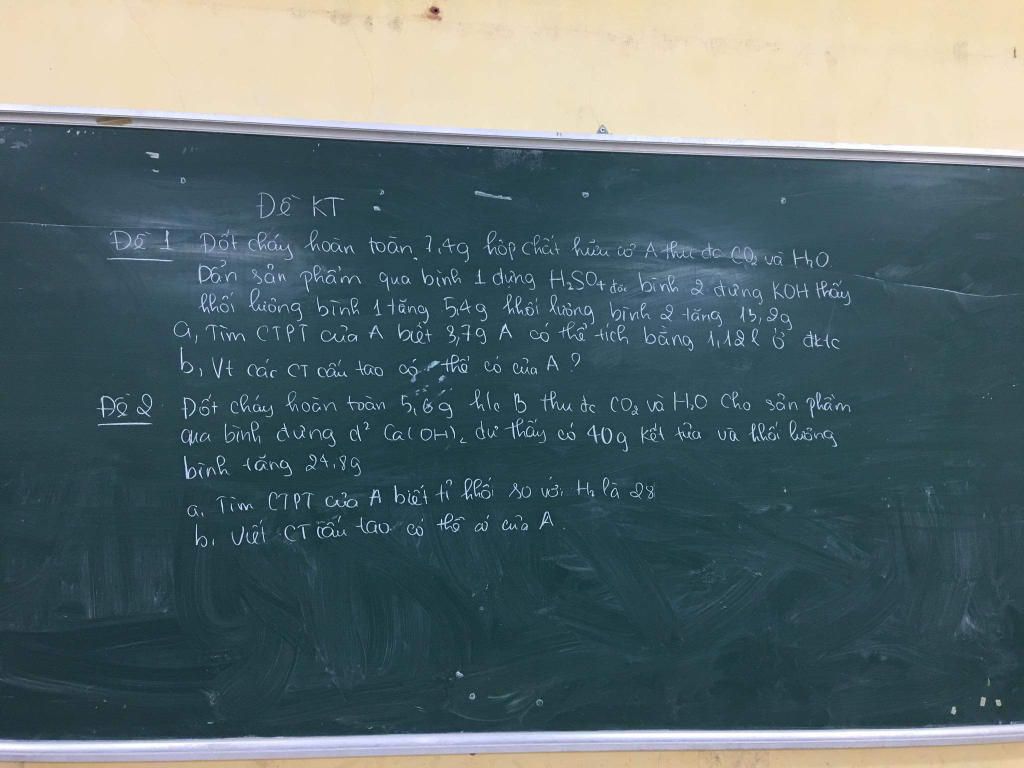 Đề KT
Đề 1 Đốt cháy hoàn toàn 7,4g hợp chất hữu cơ A thu đc CO₂ và H₂O
Dẫn sản phẩm qua bình 1 đựng H₂SO₄ đặc bình 2 đựng KOH thấy
khối lượng bình 1 tăng 5,4g khối lượng bình 2 tăng 13,2g
a, Tìm CTPT của A biết 3,7g A có thể tích bằng 1,12l ở đktc
b, Vt các CT cấu tạo có thể có của A ?
Đề 2 Đốt cháy hoàn toàn 5,6g h/c B thu đc CO₂ và H₂O Cho sản phẩm
qua bình đựng d² Ca(OH)₂ dư thấy có 40g kết tủa và khối lượng
bình tăng 24,8g
a, Tìm CTPT của A biết tỉ khối so với H₂ là 28
b, Viết CT cấu tạo có thể có của A.